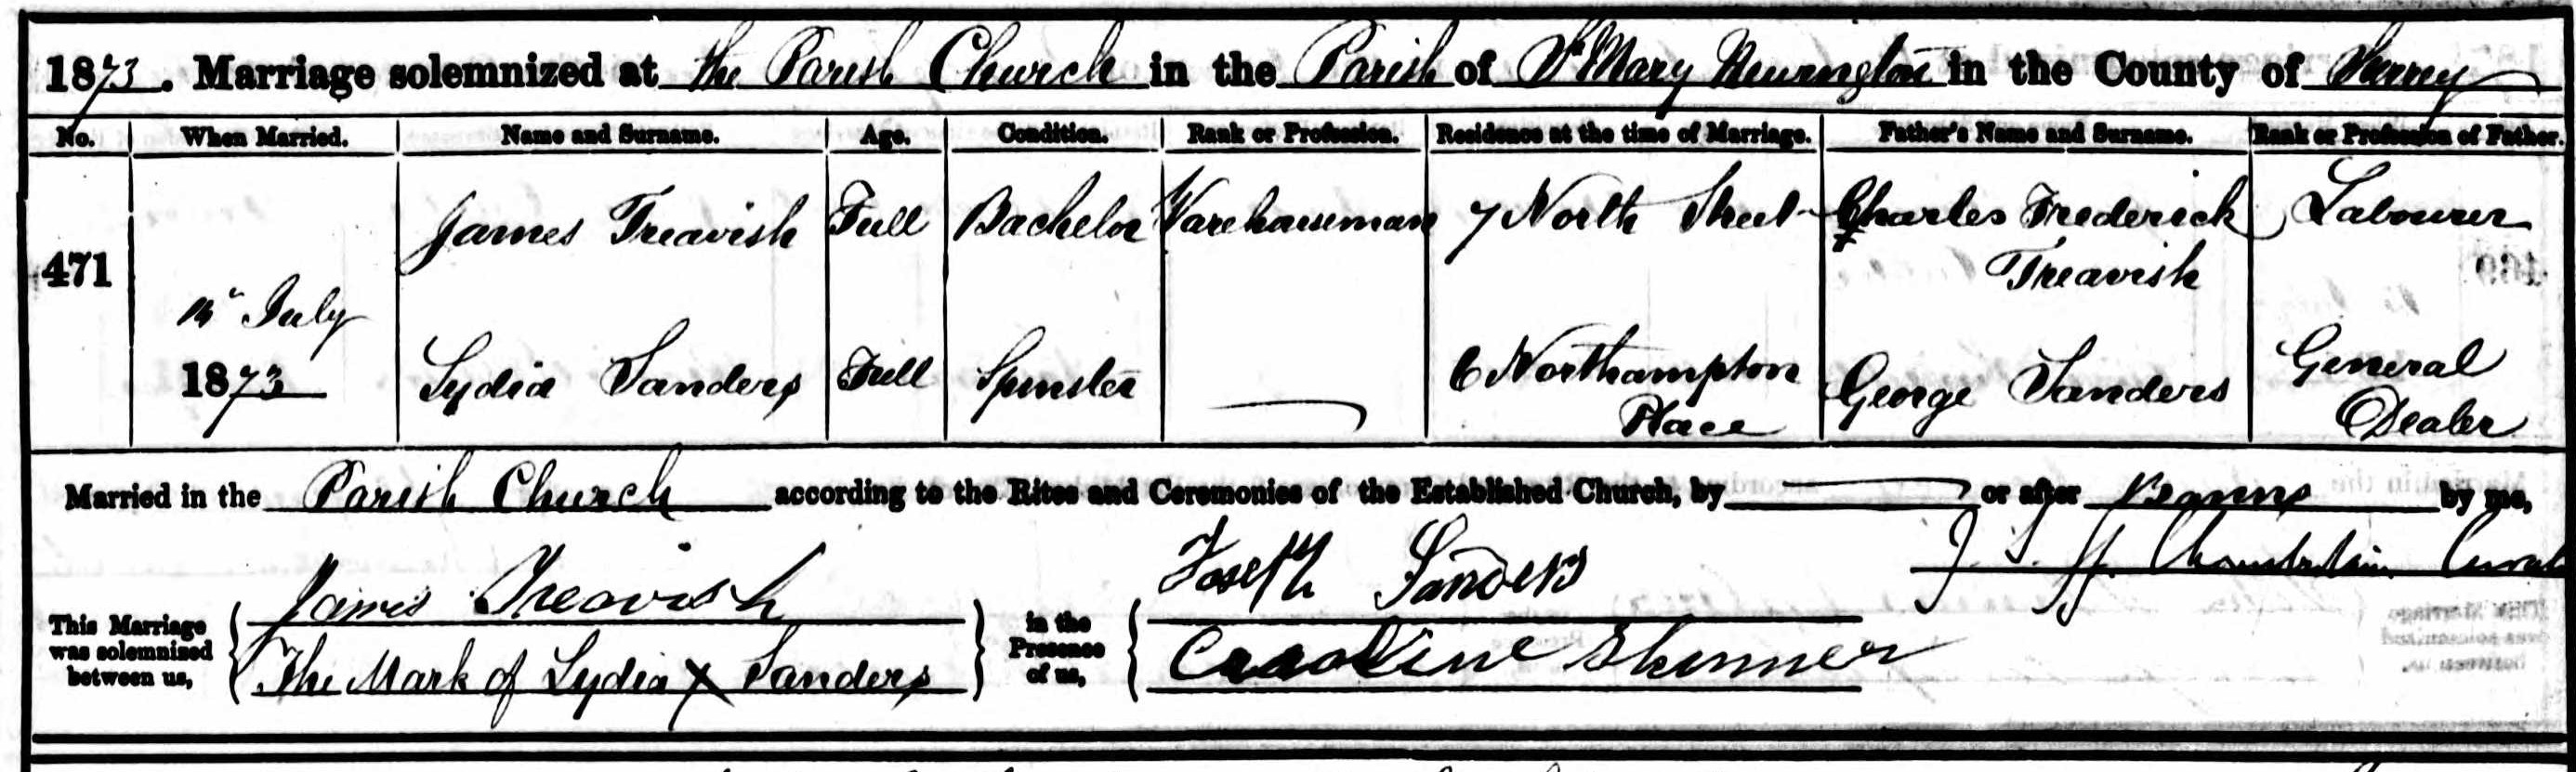 1873. Marriage solemnized at the Parish Church in the Parish of St Mary Newington in the County of Surrey
No. When Married. Name and Surname. Age. Condition. Rank or Profession. Residence at the time of Marriage. Father's Name and Surname. Rank or Profession of Father.
James Treavish Full Bachelor Warehouseman 7 North Street Charles Frederick Labourer
471 Treavish
July
1873 Lydia Sanders Full Spinster 6 Northampton George Sanders General
Place Dealer
Married in the Parish Church according to the Rites and Ceremonies of the Established Church, by or after Banns by me,
This Marriage was solemnized between us, James Treavish in the Presence of us, Joseph Sanders J. S. H. Curate
The Mark of Lydia X Sanders Caroline Skinner